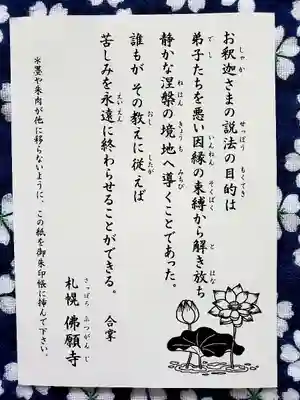 お釈迦さまの説法の目的は
弟子たちを悪い因縁の束縛から解き放ち
静かな涅槃の境地へ導くことであった。
誰もが その教えに従えば
苦しみを永遠に終わらせることができる。
合掌
札幌 佛願寺
※墨や朱肉が他に移らないように、この紙を御朱印帳に挿んで下さい。